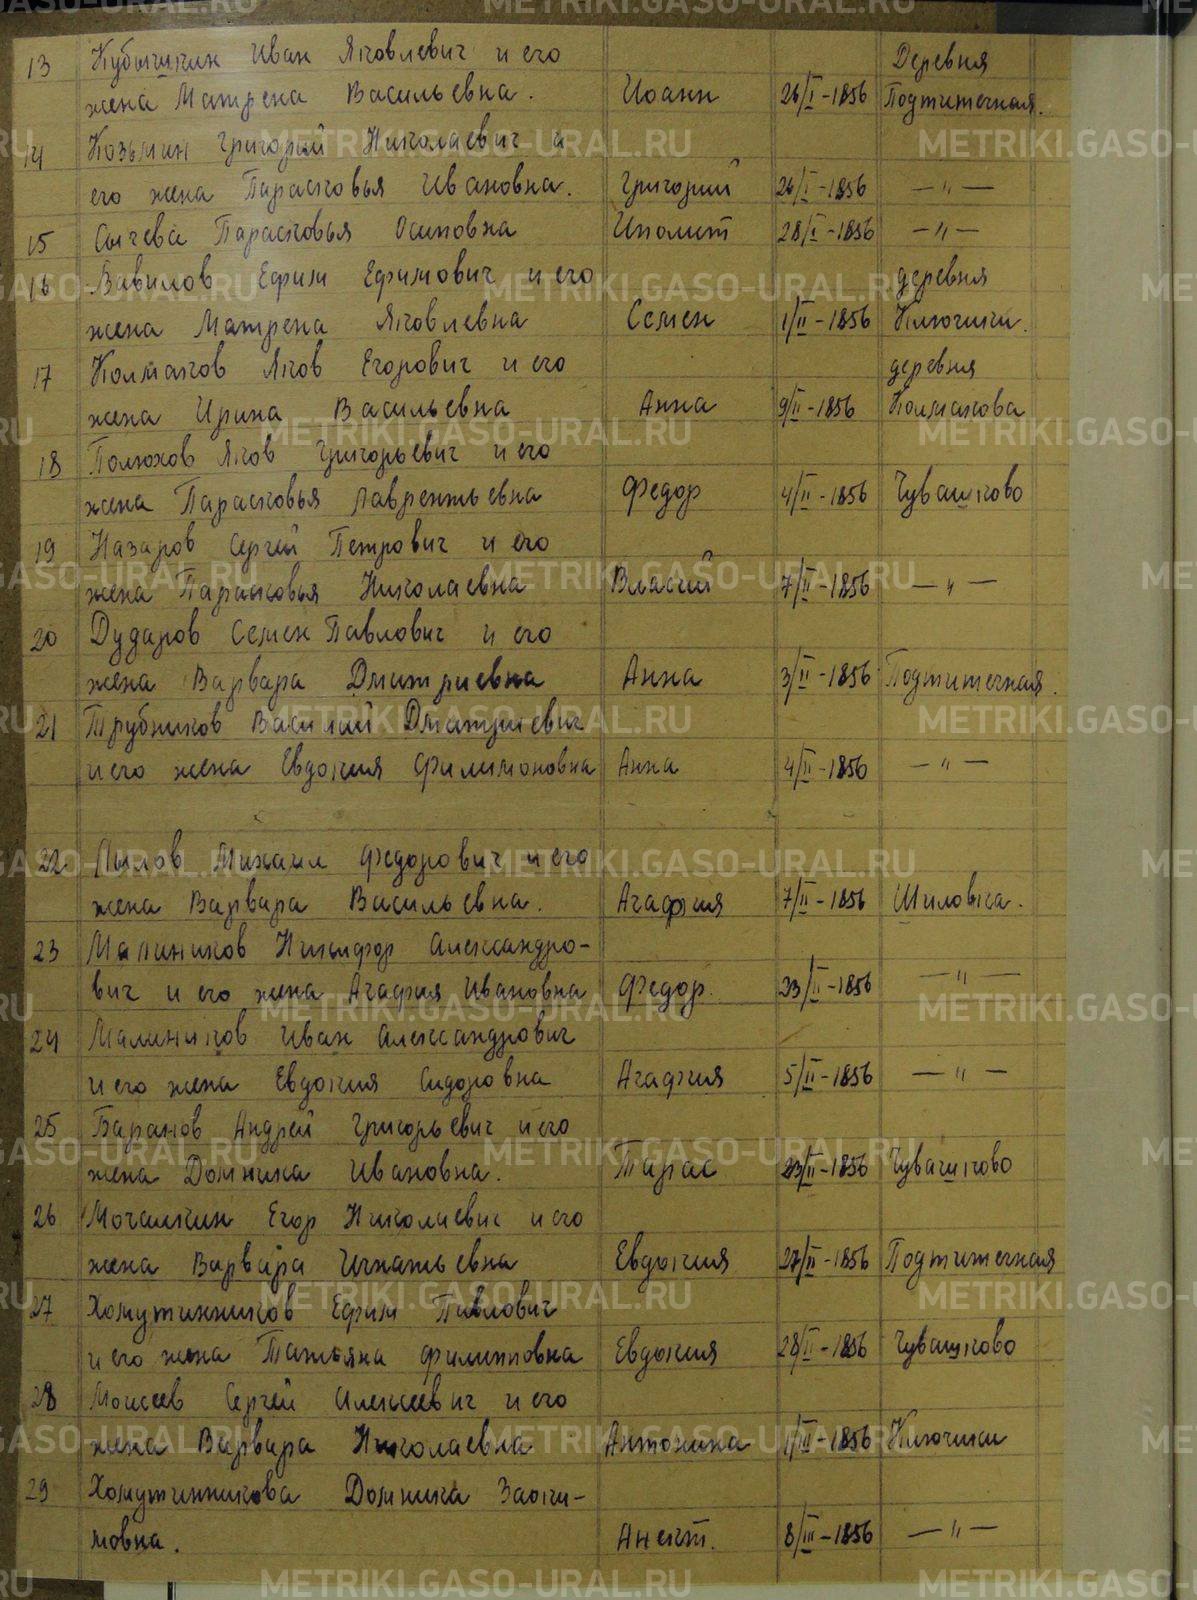 13 Кубышкин Иван Яковлевич и его Деревня
жена Матрена Васильевна. Иоанн 26/I-1856 Подтитечная.
14 Козьмин Григорий Николаевич и
его жена Парасковья Ивановна. Григорий 26/I-1856 —"—
15 Сычева Парасковья Осиповна Иполит 28/I-1856 —"—
16 Вавилов Ефим Ефимович и его деревня
жена Матрена Яковлевна Семен 1/II-1856 Ключики.
17 Колмаков Яков Егорович и его деревня
жена Ирина Васильевна Анна 9/II-1856 Колмакова
18 Полюхов Яков Григорьевич и его
жена Парасковья Лаврентьевна Федор 4/II-1856 Чувашково
19 Назаров Сергей Петрович и его
жена Парасковья Николаевна Власий 7/II-1856 —"—
20 Дударов Семен Павлович и его
жена Варвара Дмитриевна Анна 3/II-1856 Подтитечная.
21 Трубников Василий Дмитриевич
и его жена Евдокия Филимоновна Анна 4/II-1856 —"—
22 Пылов Михаил Федорович и его
жена Варвара Васильевна. Агафия 7/II-1856 Шиловка.
23 Малиников Никифор Александро-
вич и его жена Агафия Ивановна Федор. 23/II-1856 —"—
24 Малиников Иван Александрович
и его жена Евдокия Сидоровна Агафия 5/II-1856 —"—
25 Баранов Андрей Григорьевич и его
жена Домника Ивановна. Тарас 23/II-1856 Чувашково
26 Мочалкин Егор Николаевич и его
жена Варвара Игнатьевна Евдокия 27/II-1856 Подтитечная
27 Хомутинников Ефим Павлович
и его жена Татьяна Филипповна Евдокия 28/II-1856 Чувашково
28 Моисеев Сергей Алексеевич и его
жена Варвара Николаевна Антонина 1/III-1856 Ключики
29 Хомутинникова Домника Заоки-
мовна. 8/III-1856 —"—
METRIKI.GASO-URAL.RU